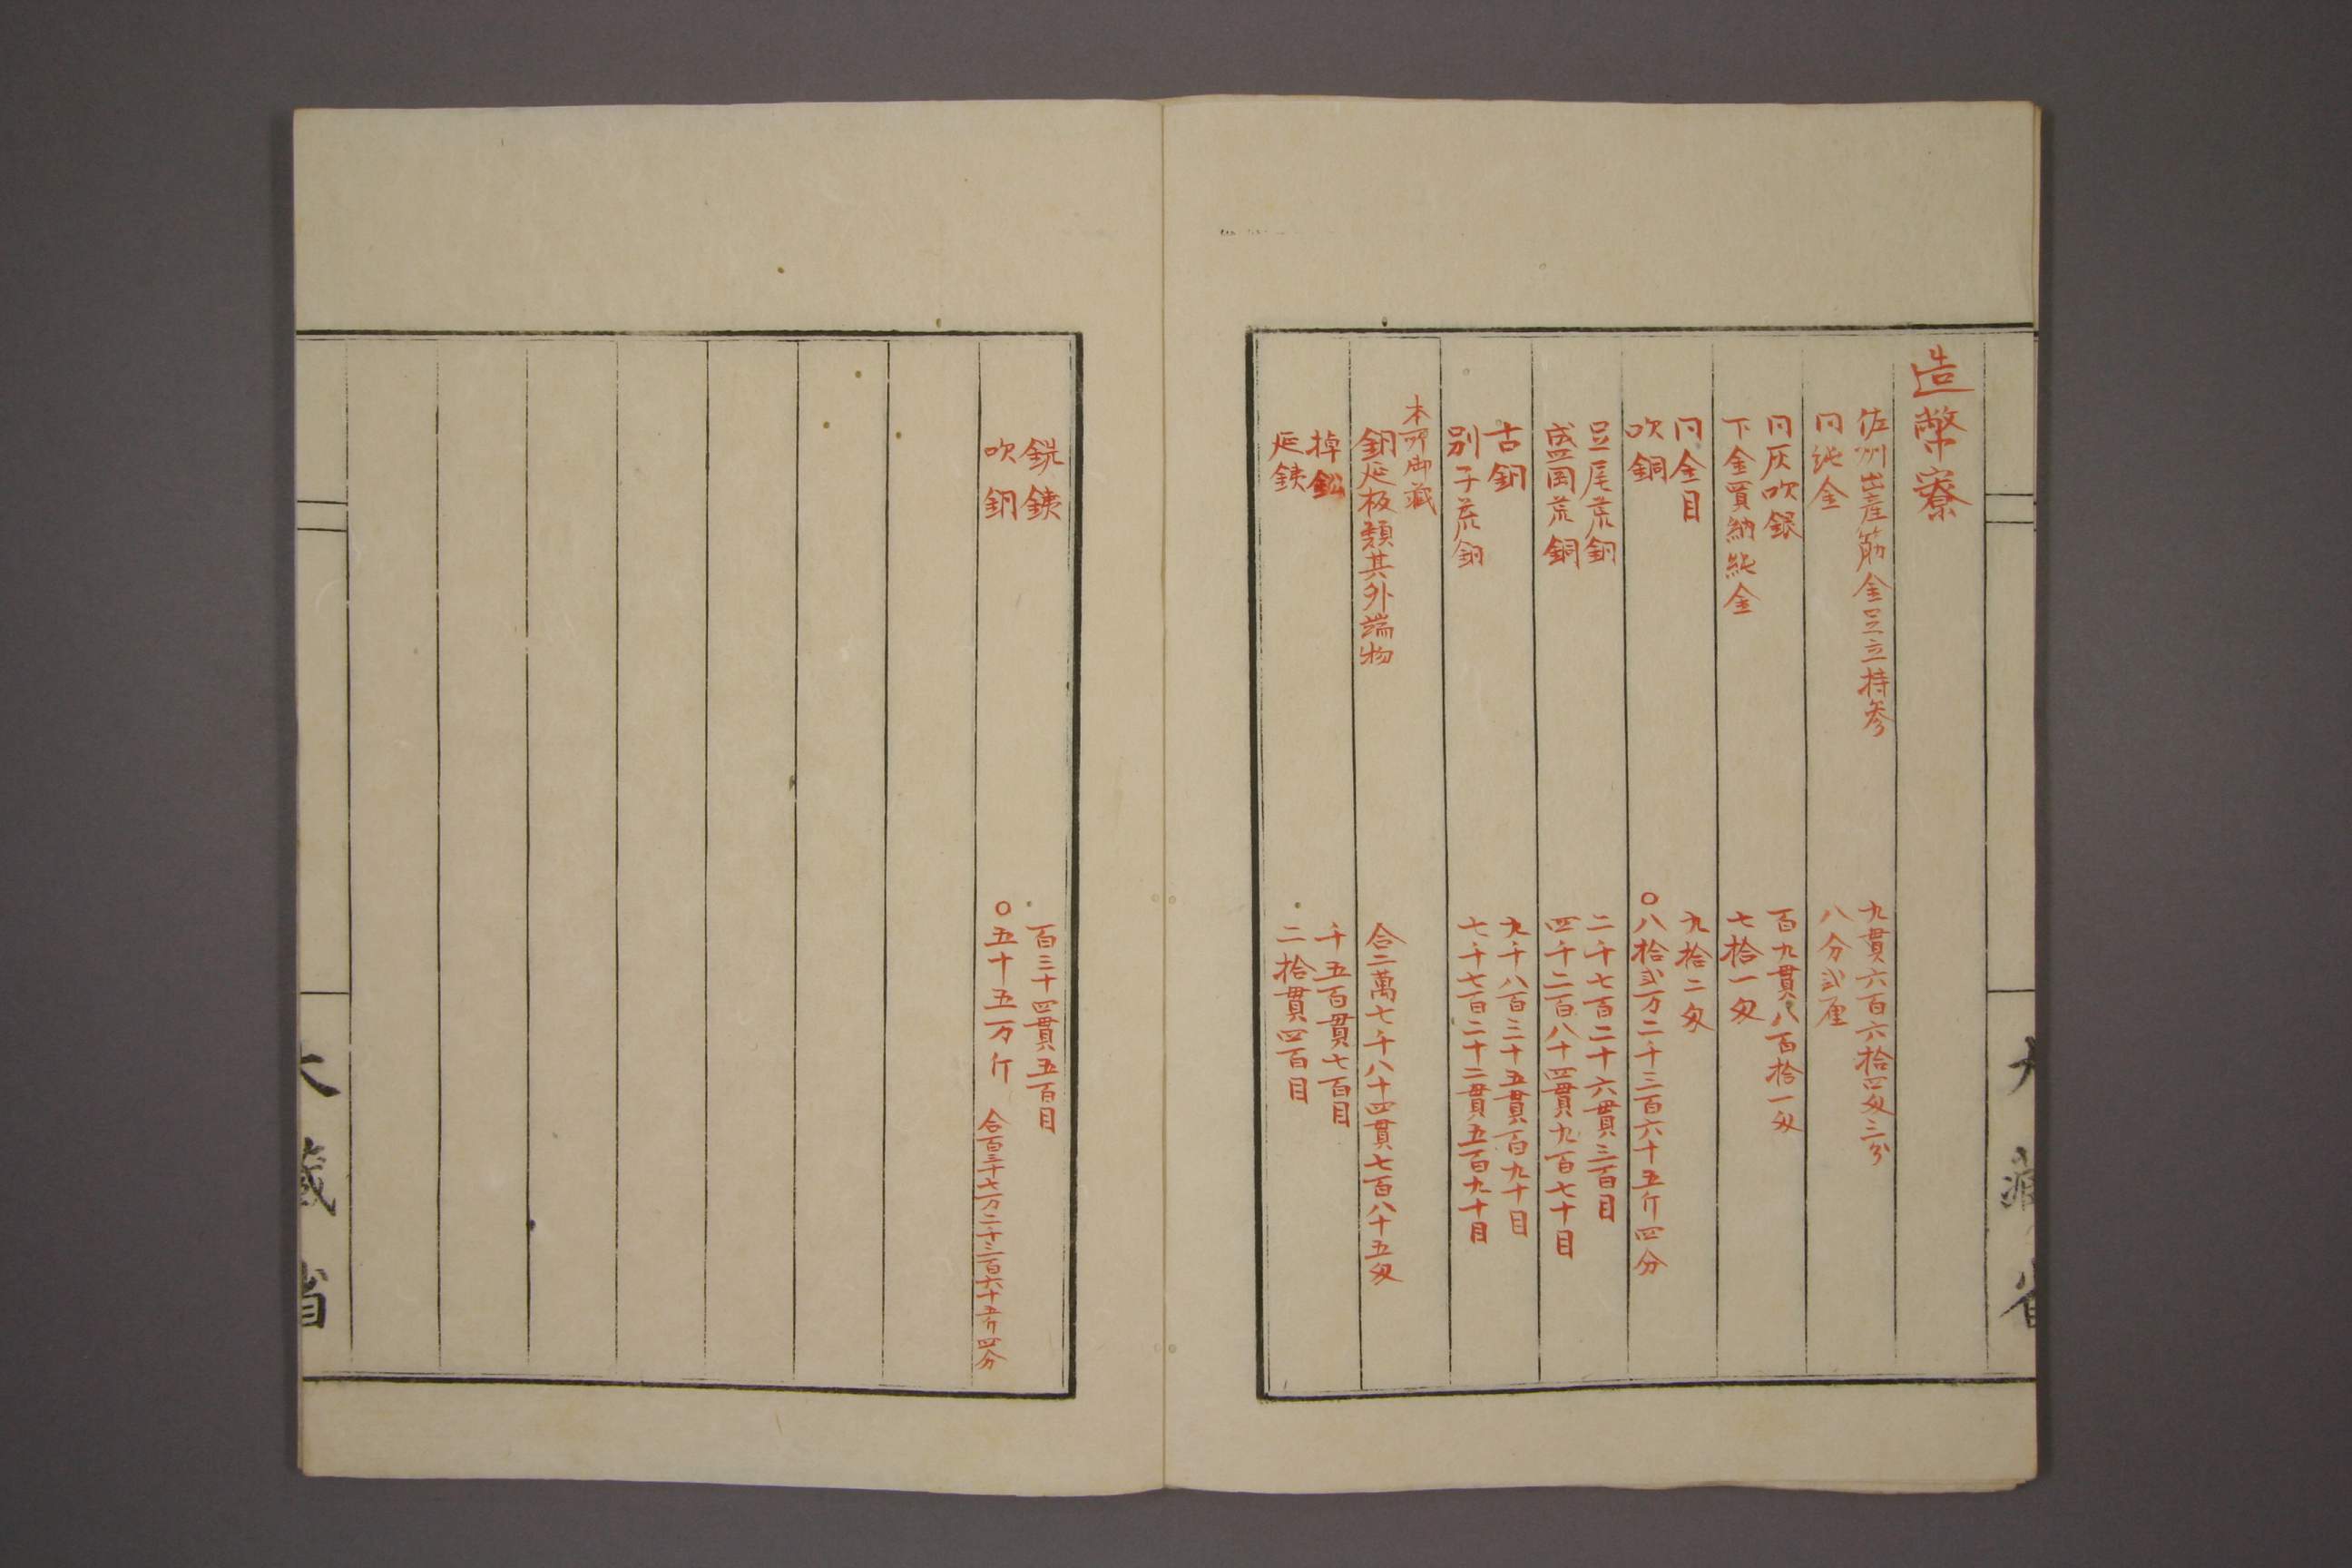 造幣寮
佐州出産筋金足立持参 九貫六百六拾四匁三分
同純金 八分弐厘
同灰吹銀 百九貫八百拾一匁
下金買納純金 七拾一匁
同金目 九拾二匁
吹銅 〇八拾弐万二千三百六十五斤四分
足尾荒銅 二千七百二十六貫三百目
盛岡荒銅 四千二百八十四貫九百七十目
古銅 九千八百三十五貫百九十目
別子荒銅 七千七百二十二貫五百九十目
本所御蔵
銅延板類其外端物 合二萬七千八十四貫七百八十五匁
棹鉛 千五百貫七百目
延銕 二拾貫四百目
銑銕 百三十四貫五百目
吹銅 〇五十五万斤 合百三十七万二千三百六十五斤四分
大藏省
大藏省